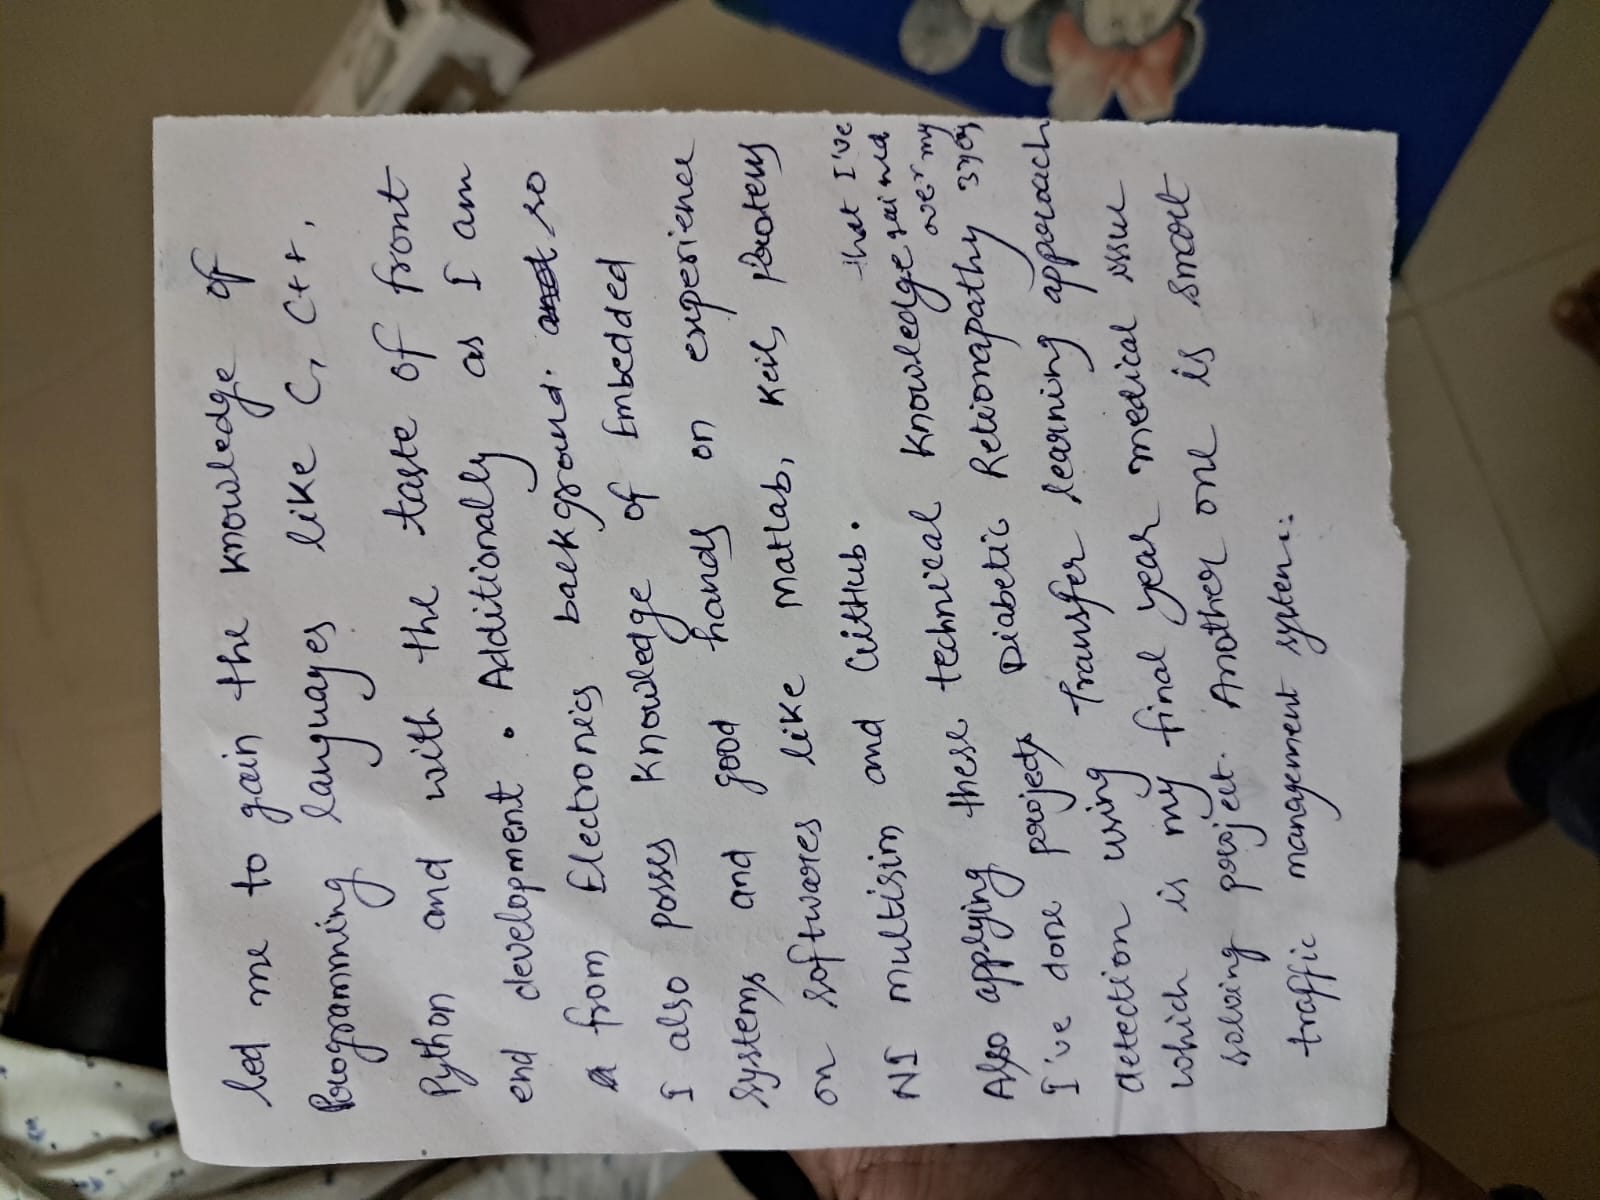 led me to gain the knowledge of
Programming languages like C, C++,
Python and with the taste of front
end development. Additionally as I am
from Electronics background. so
I also posses knowledge of Embedded
systems and good hands on experience
on softwares like Matlab, Keil, Proteus
NI multisim and GitHub.
Also applying these technical knowledge that I've gained over my
I've done projects Diabetic Retionapathy
detection using Transfer learning approach
which is my final year medical issue
solving project. Another one is smart
traffic management system.